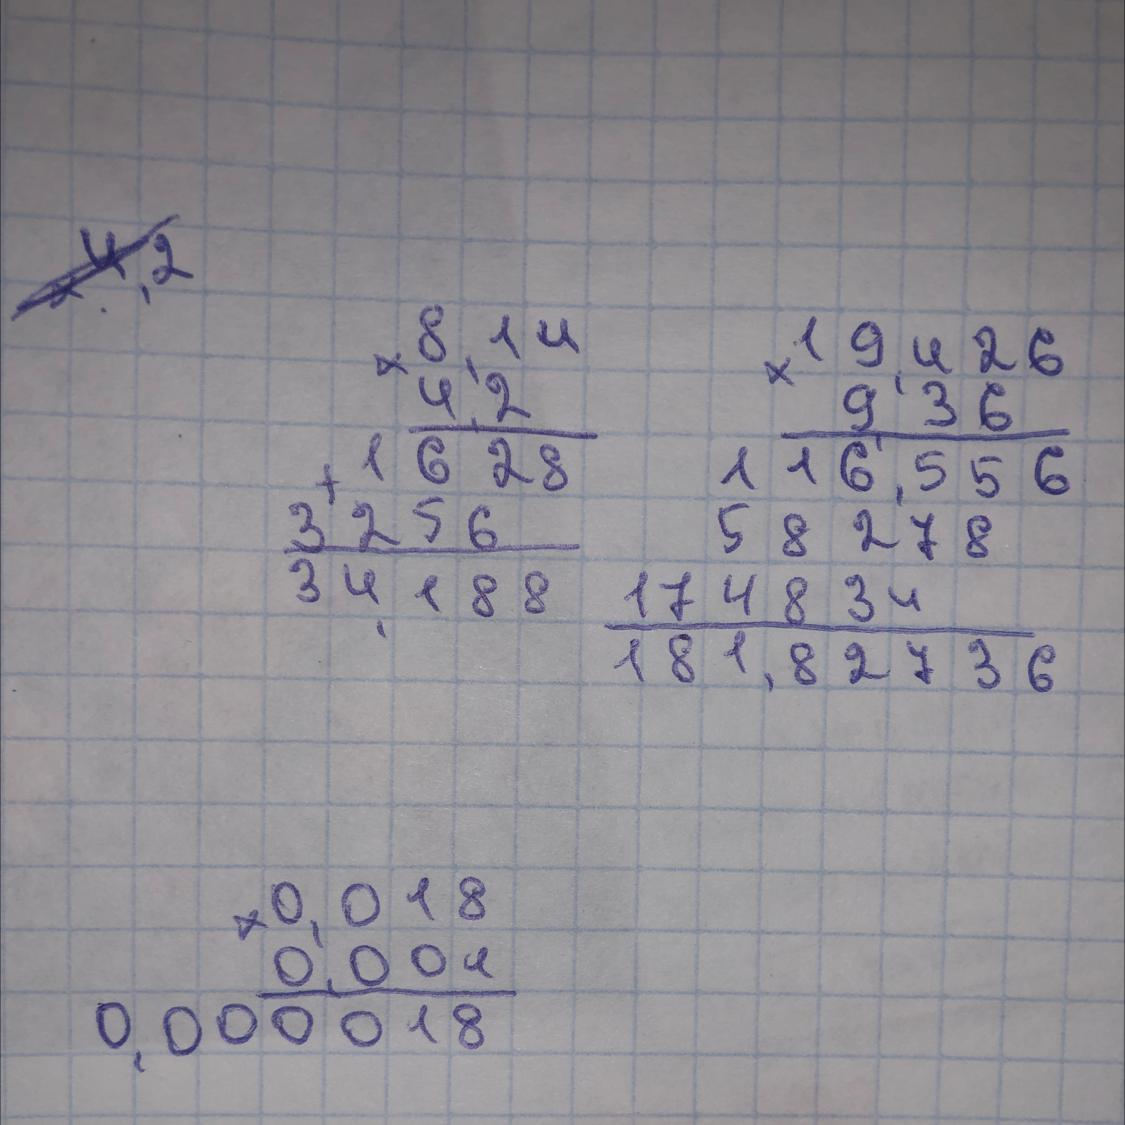 4,2
× 8,14
4,2
+ 1628
3256
34,188
× 19,426
9,36
116,556
58278
174834
181,82736
× 0,018
0,001
0,000018